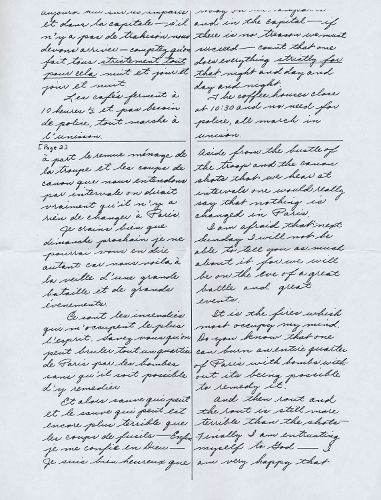 aujourd'hui sur les remparts
et dans la capitale – s'il
n'y a pas de trahison nous
devons arriver – comptez qu'on
fait tous strictement tout
pour cela nuit et jour et
jour et nuit.
Les cafés ferment à
10 heures ½ et pas besoin
de police, tout marche à
l'unisson.
[Page 2]
à part le remue ménage de
la troupe et les coups de
canon que nous entendons
par intervalle on dirait
vraiment qu'il n'y a
rien de changer à Paris.
Je crains bien que
dimanche prochain je ne
pourrai vous en dire
autant car nous voilà à
la veille d'une grande
bataille et de grands
évènements.
Ce sont les incendies
qui m'occupent le plus
l'esprit. Savez vous qu'on
peut bruler tout un quartier
de Paris par les bombes
sans qu'il soit possible
d'y remedier
Et alors sauve qui peut
et le sauve qui peut est
encore plus terrible que
les coups de fusils – Enfin
je me confie en Dieu –
Je suis bien heureux que
and in the capital – if
there is no treason we must
succeed – count that one
does everything strictly for
that night and day and
day and night.
The coffee houses close
at 10:30 and no need for
police, all march in
unison.
Aside from the bustle of
the troop and the canon
shots that we hear at
intervals one would really
say that nothing is
changed in Paris
I am afraid that next
Sunday I will not be
able to tell you as much
about it for we will
be on the eve of a great
battle and great
events.
It is the fires which
most occupy my mind.
Do you know that one
can burn an entire quarter
of Paris with bombs with
out its being possible
to remedy it!
And then rout and
the rout is still more
terrible than the shots –
Finally I am entrusting
myself to God – I
am very happy that